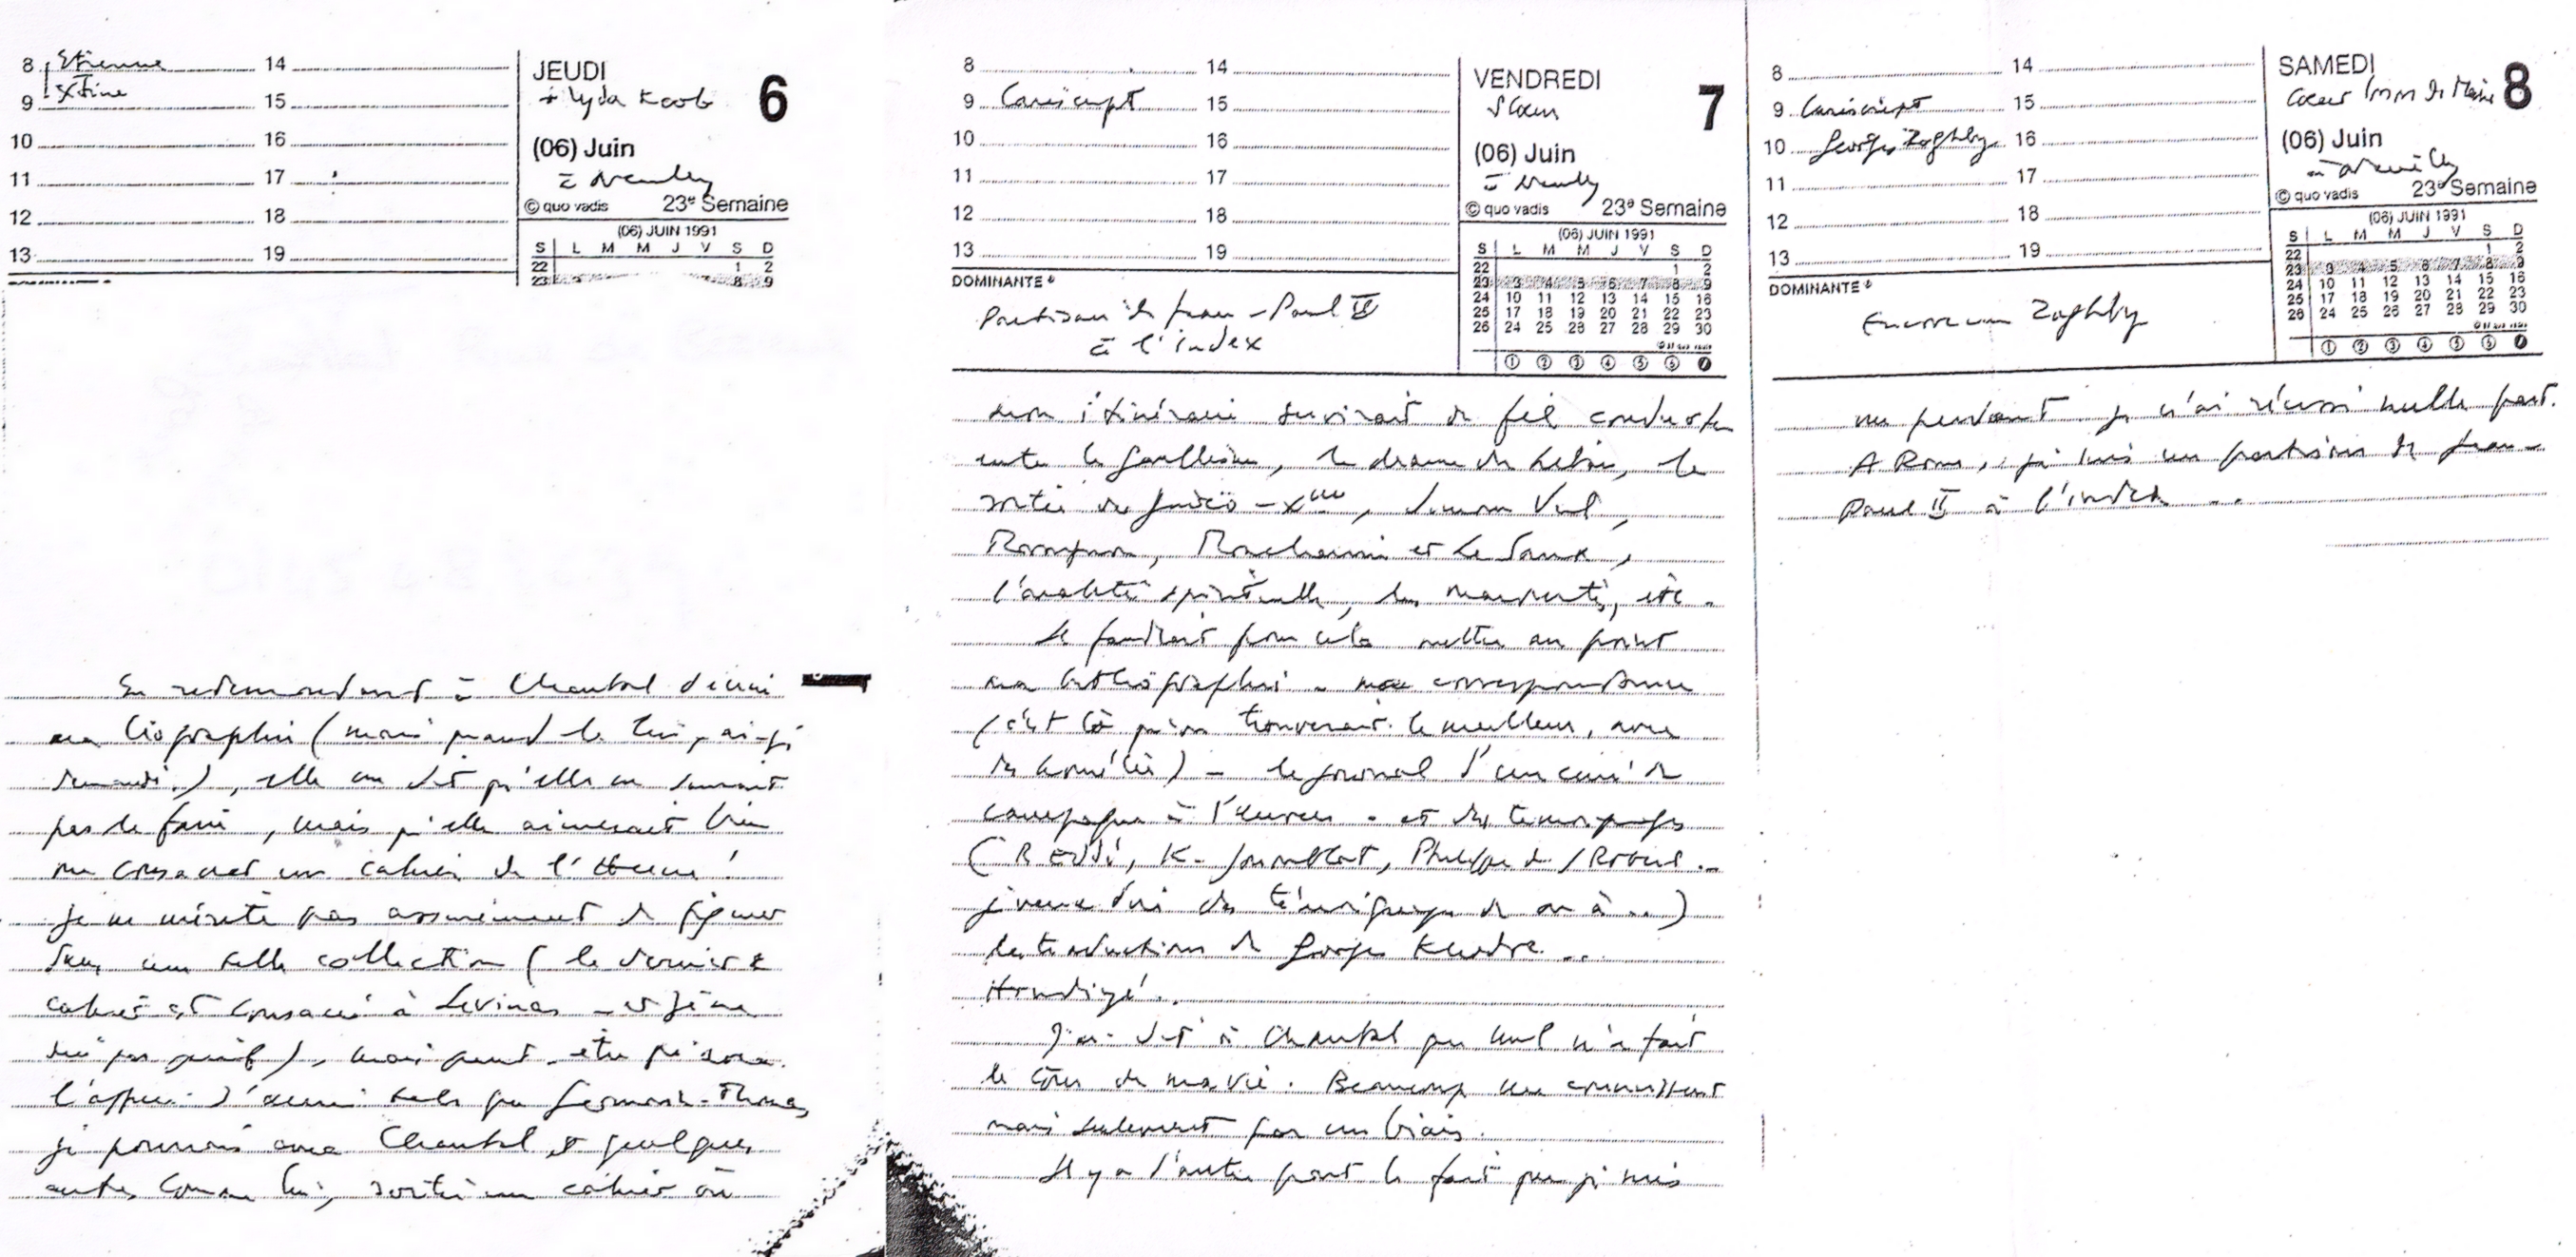 8 Etienne 14
9 Xtine 15
10 16
11 17
12 18
13 19
JEUDI 6
+ Lyda
(06) Juin
à Neuilly
© quo vadis 23e Semaine
(06) JUIN 1991
S L M M J V S D
22 1 2
23 3 8 9
En redemandant à Chantal d'écrire
ma biographie (mais quand le lui ai-je
demandé ?), elle me dit qu'elle ne saurait
pas le faire, mais qu'elle aimerait bien
me consacrer un cahier de l'Herne !
Je ne mérite pas assurément de figurer
dans une telle collection (le dernier
cahier est consacré à Levinas - et je ne
suis pas juif), mais peut-être qu'avec
l'appui d'amis tels que Germain-Thomas,
je pourrais avec Chantal et quelques
autres comme lui, sortir un cahier où
8 14
9 Caniscript 15
10 16
11 17
12 18
13 19
VENDREDI 7
S Cœur
(06) Juin
à Neuilly
© quo vadis 23e Semaine
(06) JUIN 1991
S L M M J V S D
22 1 2
23 3 4 5 6 7 8 9
24 10 11 12 13 14 15 16
25 17 18 19 20 21 22 23
26 24 25 26 27 28 29 30
① ② ③ ④ ⑤ ⑥ ⑦
DOMINANTE
Partisan de Jean-Paul II
à l'index
mon itinéraire servirait de fil conducteur
entre le gaullisme, le drame du Liban, la
sortie du judéo-Xme,
et Le Saux,
spirituelle, etc.
Il faudrait pour cela mettre au point
ma bibliographie - ma correspondance
(c'est là qu'on trouverait le meilleur, avec
les homélies) - le journal d'un curé de
campagne à l'envers - et des témoignages
(R Eddé, K. Joumblat, Philippe de
je veux dire des témoignages de moi à ..)
les traductions de Georges Khodre ..
J'ai dit à Chantal que nul n'a fait
le tour de ma vie. Beaucoup me connaissent
mais seulement par un biais.
Il y a d'autre part le fait que je suis
8 14
9 Caniscript 15
10 Georges Zoghby 16
11 17
12 18
13 19
SAMEDI 8
Cœur Imm de Marie
(06) Juin
à Neuilly
© quo vadis 23e Semaine
(06) JUIN 1991
S L M M J V S D
22 1 2
23 3 4 5 6 7 8 9
24 10 11 12 13 14 15 16
25 17 18 19 20 21 22 23
26 24 25 26 27 28 29 30
① ② ③ ④ ⑤ ⑥ ⑦
DOMINANTE
Zoghby
un perdant. Je n'ai réussi nulle part.
A Rome, je suis un partisan de Jean-
Paul II à l'index ..